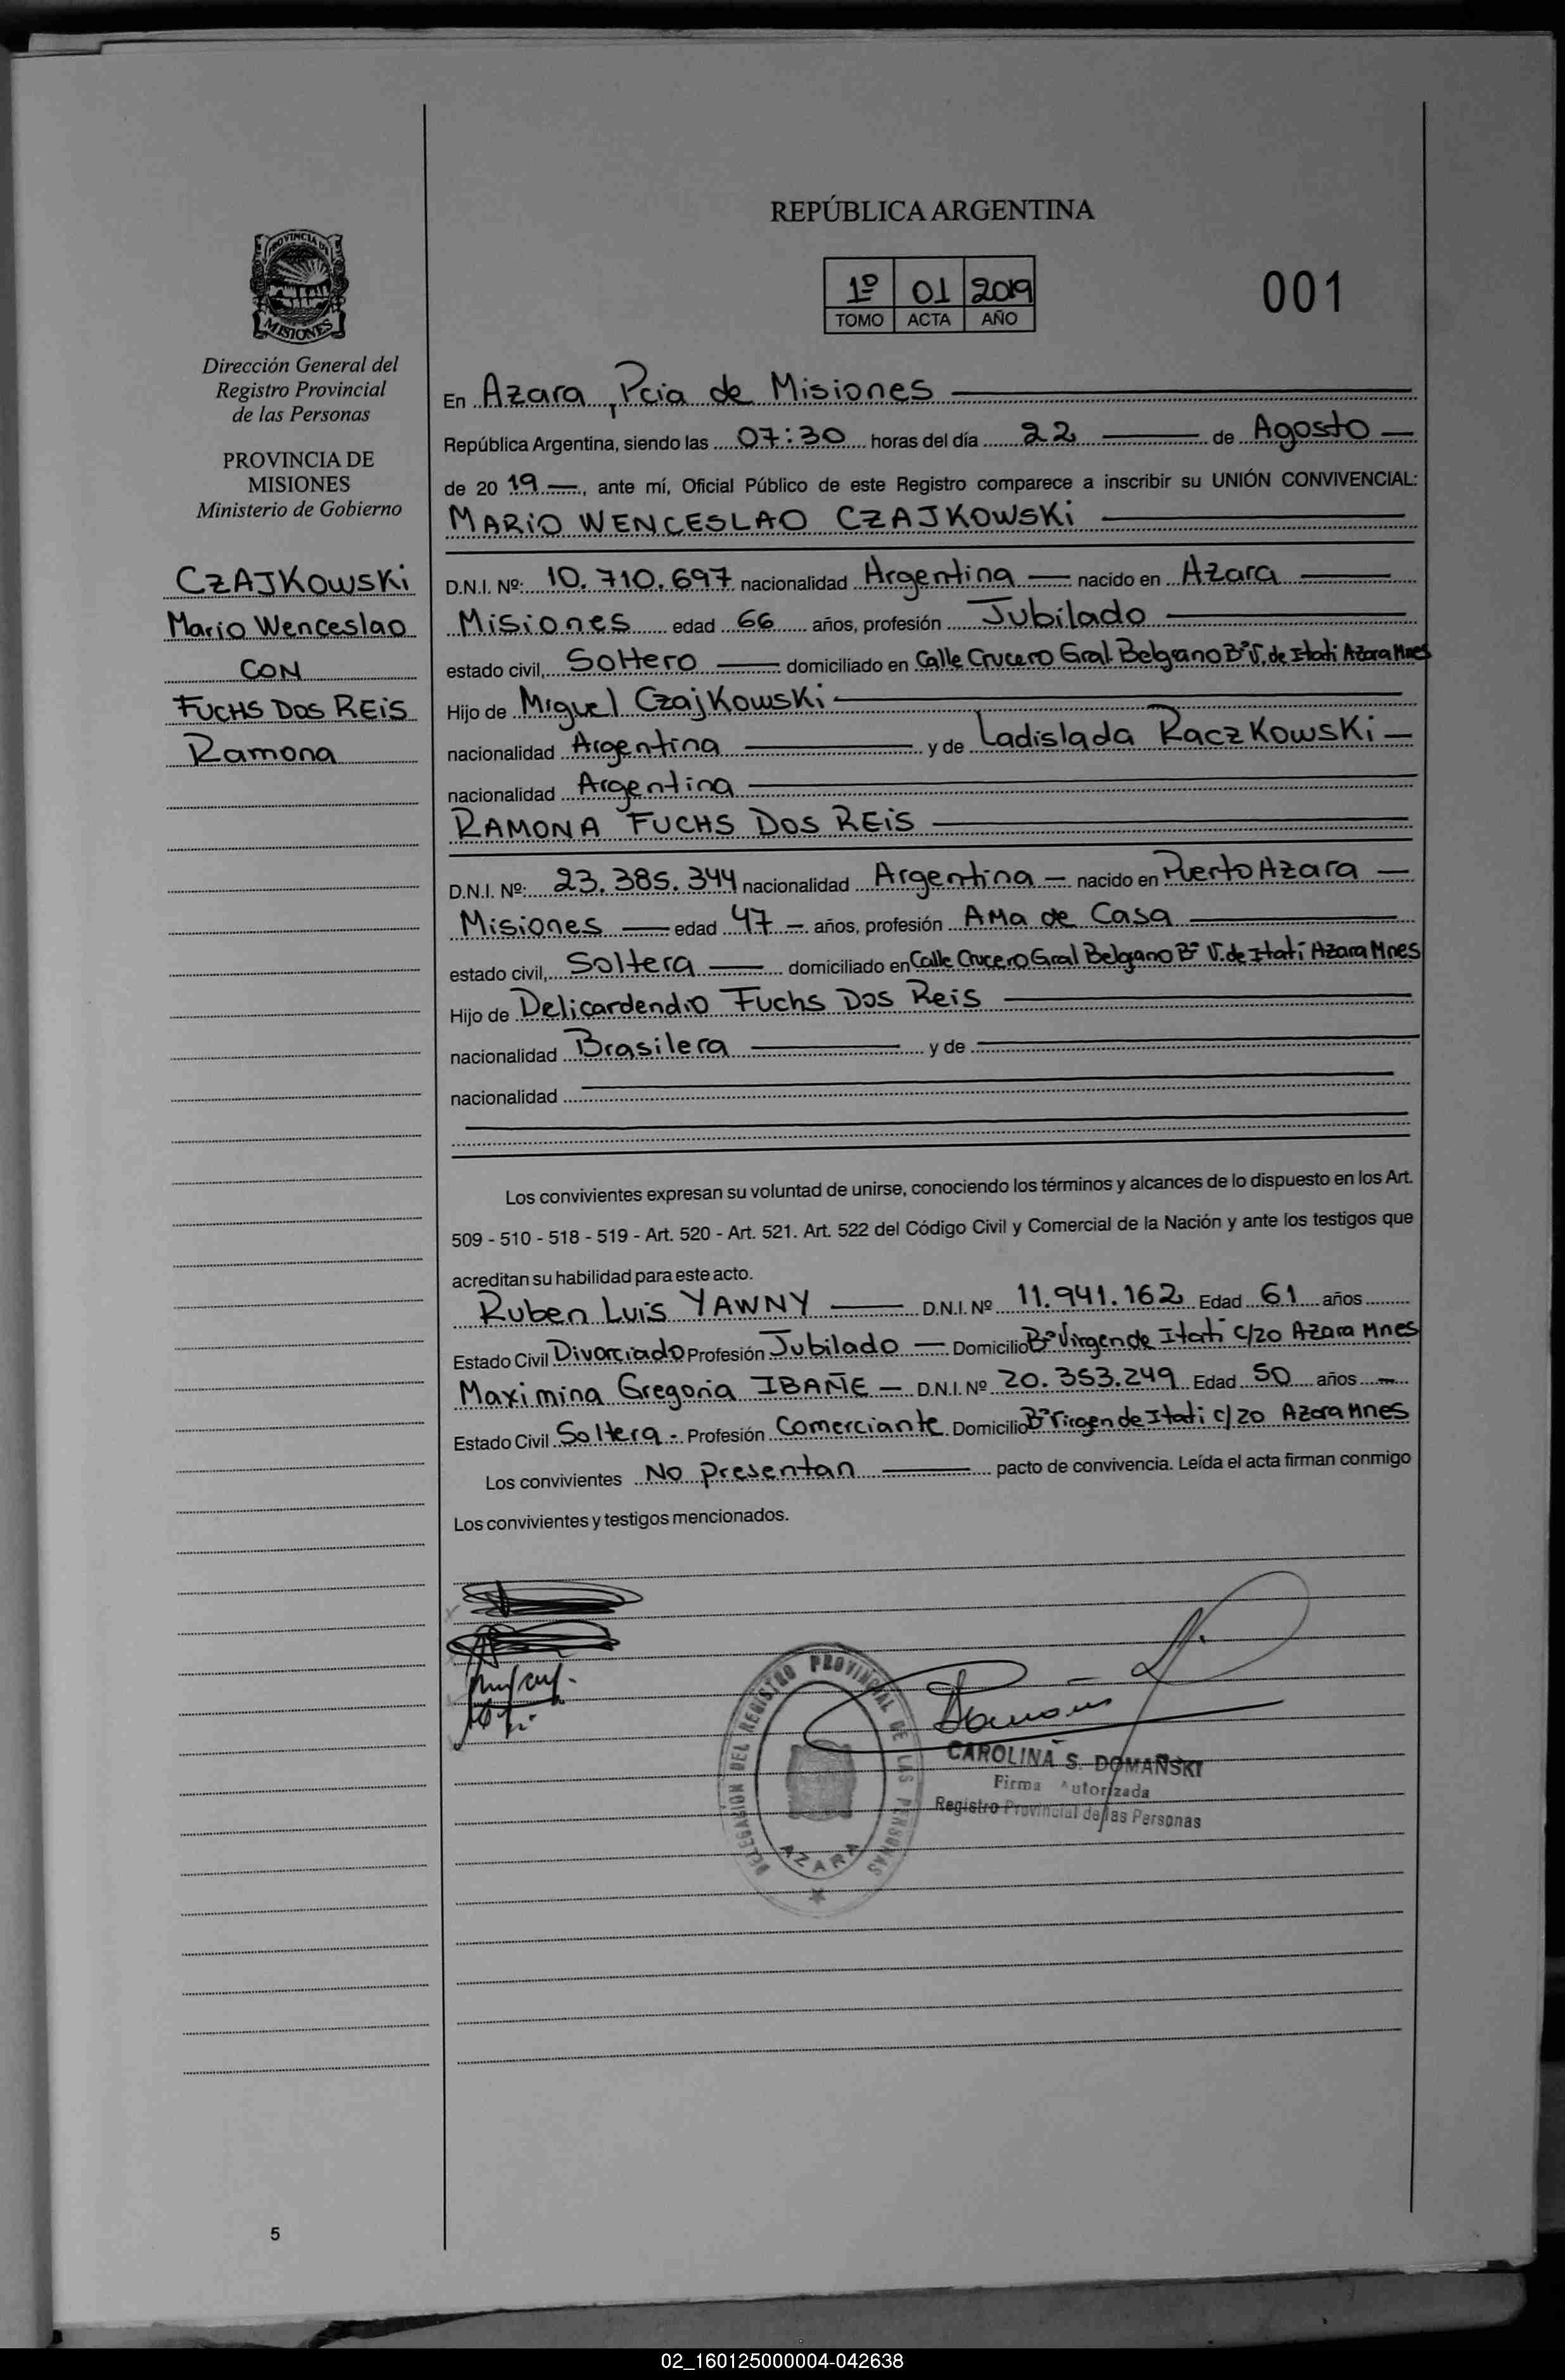 REPÚBLICA ARGENTINA
1º 01 2019
TOMO ACTA AÑO
001
PROVINCIA DE
MISIONES
Dirección General del
Registro Provincial
de las Personas
PROVINCIA DE
MISIONES
Ministerio de Gobierno
CZAJKOWSKi
Mario Wenceslao
CON
FUCHS DOS REiS
Ramona
En Azara, Pcia de Misiones
República Argentina, siendo las 07:30 horas del día 22 de Agosto
de 20 19, ante mí, Oficial Público de este Registro comparece a inscribir su UNIÓN CONVIVENCIAL:
MARiO WENCESLAO CZAJKOWSKi
D.N.I. Nº: 10.710.697 nacionalidad Argentina nacido en Azara
Misiones edad 66 años, profesión Jubilado
estado civil, Soltero domiciliado en Calle Crucero Gral. Belgrano Bº V. de Itati Azara Mnes
Hijo de Miguel CzajKowsKi
nacionalidad Argentina y de Ladislada RaczKowsKi
nacionalidad Argentina
RAMONA FUCHS DOS REiS
D.N.I. Nº: 23.385.344 nacionalidad Argentina nacido en Puerto Azara
Misiones edad 47 años, profesión AMa de Casa
estado civil, Soltera domiciliado en Calle Crucero Gral Belgrano Bº V. de Itatí Azara Mnes
Hijo de Delicardendio Fuchs Dos Reis
nacionalidad Brasilera y de
nacionalidad
Los convivientes expresan su voluntad de unirse, conociendo los términos y alcances de lo dispuesto en los Art.
509 - 510 - 518 - 519 - Art. 520 - Art. 521. Art. 522 del Código Civil y Comercial de la Nación y ante los testigos que
acreditan su habilidad para este acto.
Ruben Luis YAWNY D.N.I. Nº 11.941.162 Edad 61 años
Estado Civil Divorciado Profesión Jubilado Domicilio Bº Virgen de Itatí C/20 Azara Mnes
Maximina Gregoria IBAÑE D.N.I. Nº 20.353.249 Edad 50 años
Estado Civil Soltera Profesión Comerciante Domicilio Bº Virgen de Itati C/20 Azara Mnes
Los convivientes No presentan pacto de convivencia. Leída el acta firman conmigo
Los convivientes y testigos mencionados.
DELEGACIÓN DEL REGISTRO PROVINCIAL DE LAS PERSONAS
AZARA
CAROLINA S. DOMAÑSKI
Firma Autorizada
Registro Provincial de las Personas
5
02_160125000004-042638